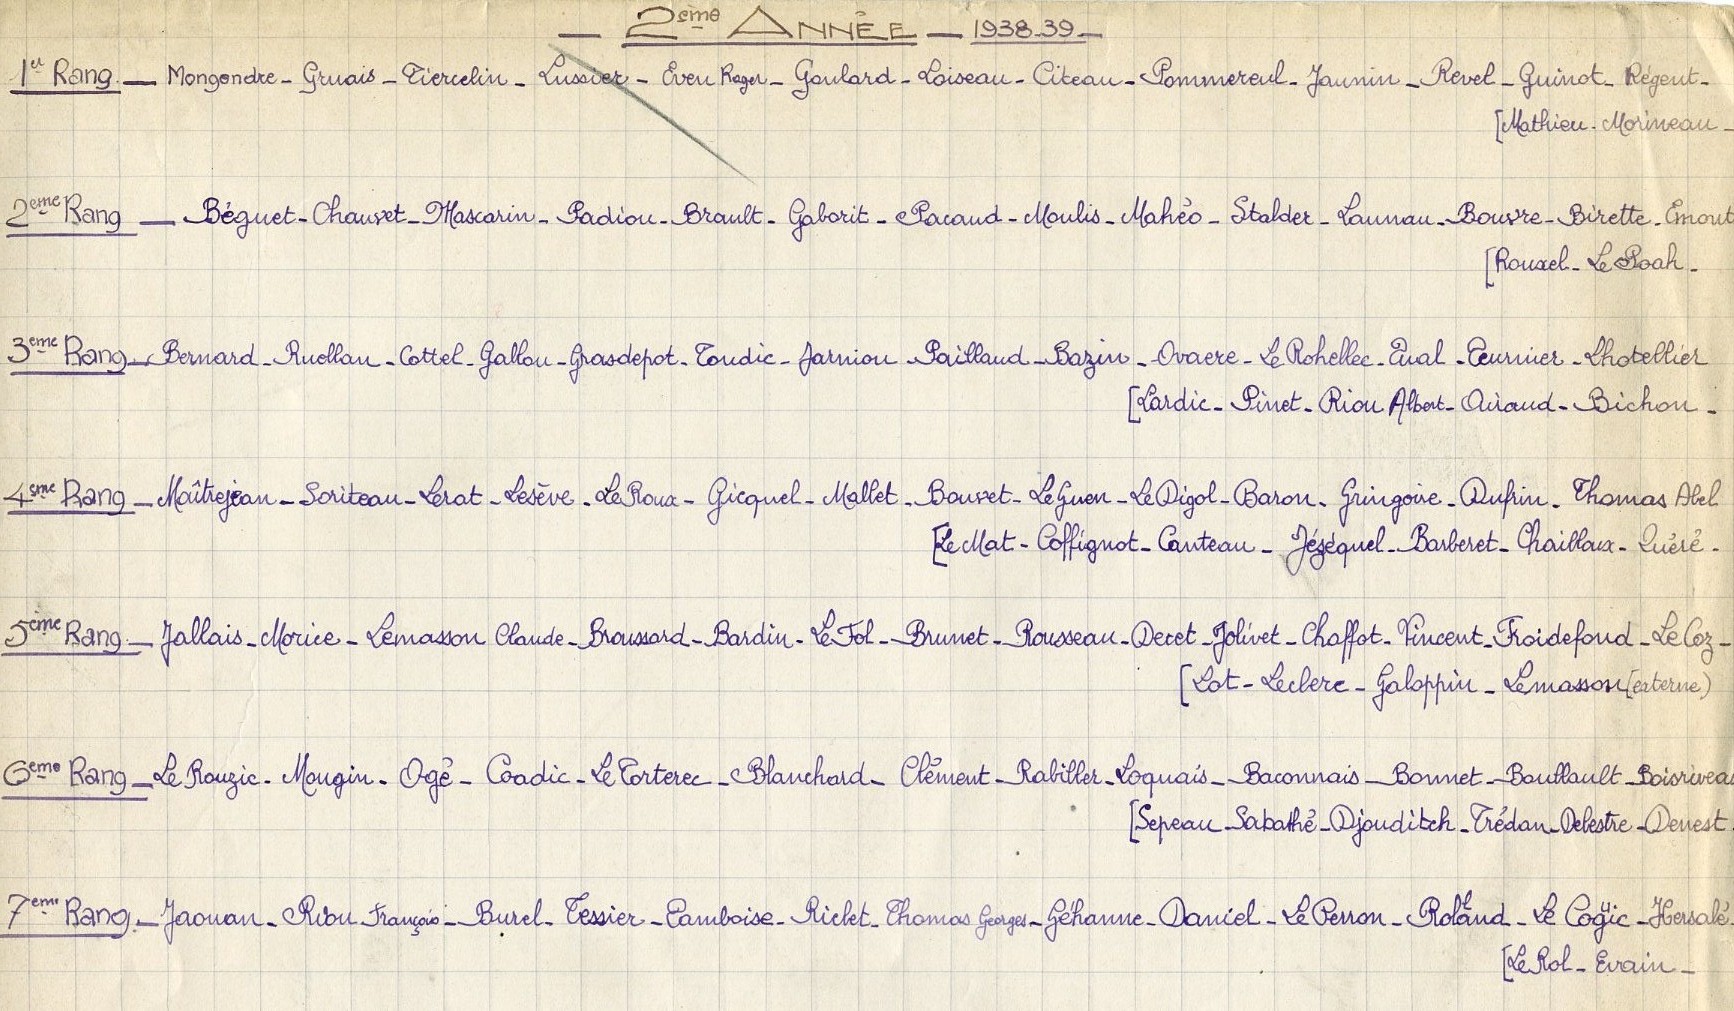 — 2ème ANNÉE — 1938-39 —
1er Rang — Mongondre - Gruais - Tiercelin - Lussier - Even Roger - Goulard - Loiseau - Citeau - Pommereul - Jaunin - Revel - Guinot - Régent -
[Mathieu - Morineau -
2eme Rang — Béguet - Chauvet - Mascarin - Padiou - Brault - Gaborit - Pacaud - Moulis - Mahéo - Stalder - Launau - Bouvre - Birette - Emout
[Rouxel - Le Roah -
3eme Rang - Bernard - Ruellan - Cottel - Gallou - Grasdepot - Toudic - Jarniou - Paillaud - Bazin - Ovaere - Le Rohellec - Eual - Teurnier - Lhotellier
[Lardic - Pinet - Riou Albert - Airaud - Bichon -
4eme Rang - Maîtrejean - Soriteau - Lerat - Lesève - Le Roux - Gicquel - Mallet - Bouvet - Le Guen - Le Digol - Baron - Gringoire - Dufrin - Thomas Abel
[Le Mat - Coffignot - Canteau - Jézéquel - Barberet - Chailloux - Quéré -
5ème Rang - Jallais - Morice - Lemasson Claude - Broussard - Bardin - Le Fol - Brunet - Rousseau - Decet - Jolivet - Chaffot - Vincent - Froidefond - Le Coz -
[Lot - Leclerc - Galoppin - Lemasson (externe)
6eme Rang - Le Rouzic - Mougin - Ogé - Coadic - Le Torterec - Blanchard - Clément - Rabiller - Loquais - Baconnais - Bonnet - Boullault - Boisriveau
[Sepeau - Sabathé - Djouditch - Trédan - Delestre - Denest
7eme Rang - Jaouan - Riou François - Burel - Tessier - Camboise - Richet - Thomas Georges - Géhanne - Daniel - Le Perron - Roland - Le Coğic - Hersalé
[Le Rol - Evain -